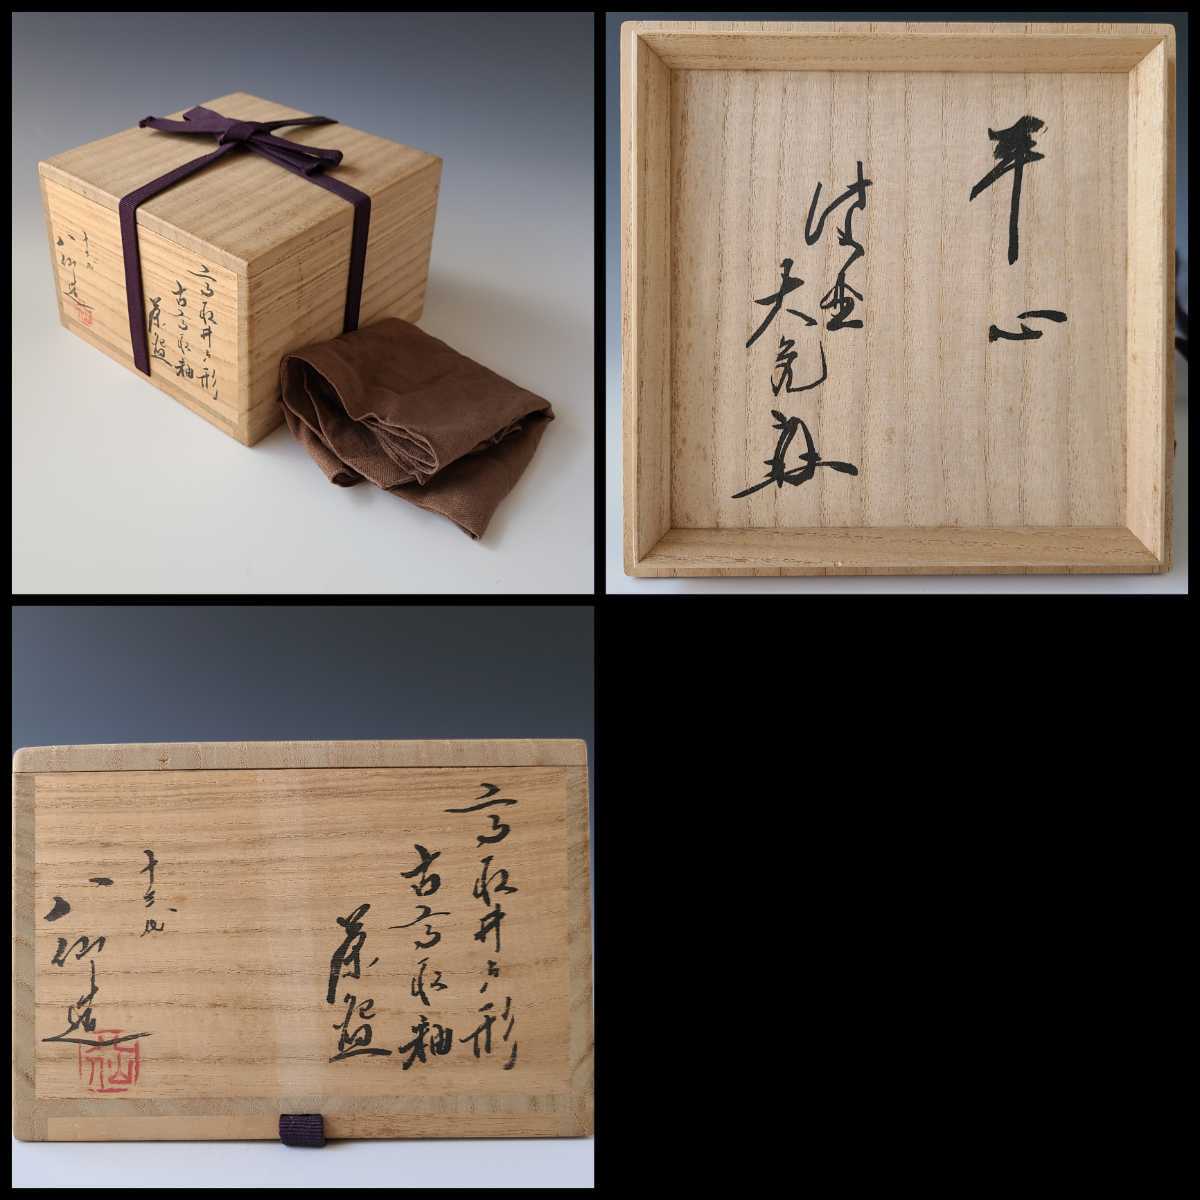 十三代
八仙造
高取井戸形
古高取釉
茶盌
平心
大亀
高取井戸形
古高取釉
茶盌
十三代
八仙造
八仙